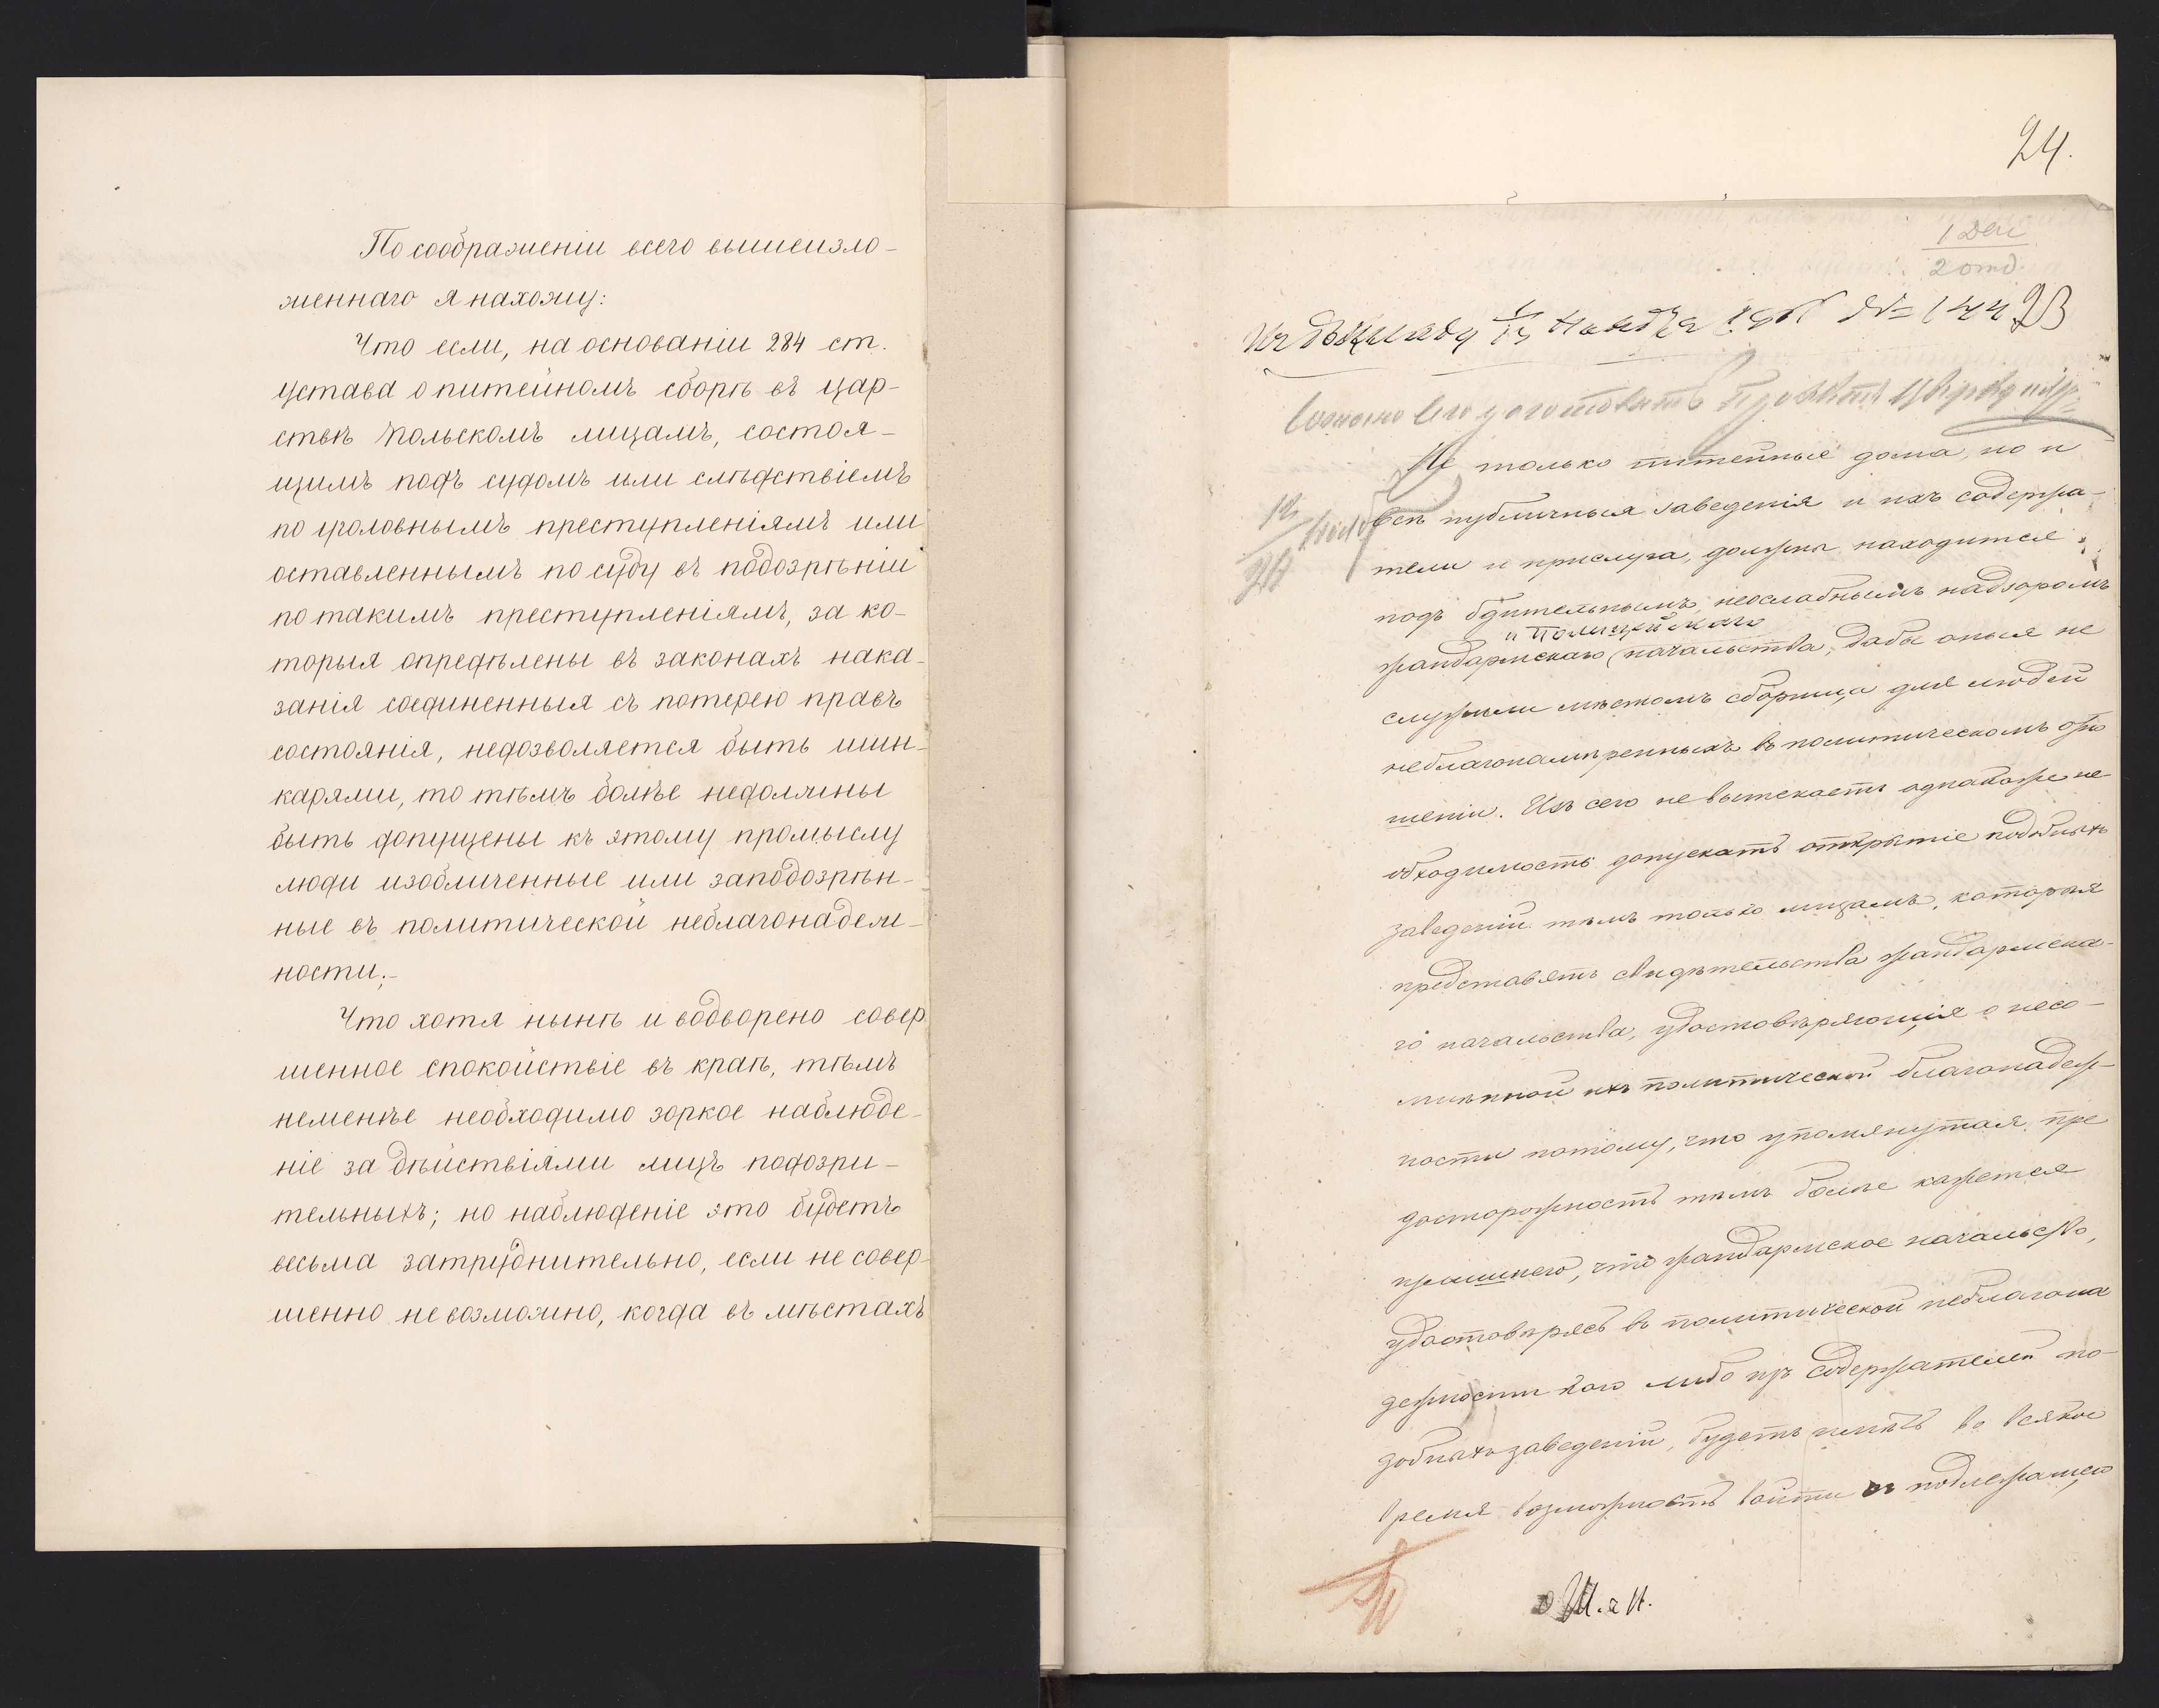 По соображеніи всего вышеизло-
женнаго я нахожу:
Что если, на основаніи 284 ст.
устава о питейномъ сборѣ въ цар-
ствѣ Польскомъ лицамъ, состоя-
щимъ подъ судомъ или слѣдствіемъ
по уголовнымъ преступленіямъ или
оставленнымъ по суду въ подозрѣніи
по такимъ преступленіямъ, за ко-
торыя опредѣлены въ законахъ нака-
занія соединенныя съ потерею правъ
состоянія, недозволяется быть шин-
карями, то тѣмъ болѣе недолжны
быть допущены къ этому промыслу
люди изобличенные или заподозрѣн-
ные въ политической неблагонадеж-
ности;-
Что хотя нынѣ и водворено совер-
шенное спокойствіе въ краѣ, тѣмъ
неменѣе необходимо зоркое наблюде-
ніе за дѣйствіями лицъ подозри-
тельныхъ; но наблюденіе это будетъ
весьма затруднительно, если не совер-
шенно невозможно, когда въ мѣстахъ
24.
2 отд.
№
Не только питейные дома, но и
всѣ публичныя заведенія и ихъ содержа-
тели и прислуга, должны находится
подъ бдительнымъ, неослабнымъ надзоромъ
и Полицейскаго
жандармскаго начальства, дабы оныя не
служили мѣстомъ сборища для людей
неблагонамѣренныхъ въ политическомъ отно
шеніи. Изъ сего не вытекаетъ однакоже не
обходимость допускать открытіе подобныхъ
заведеній тѣмъ только лицамъ, которыя
представятъ свидѣтельства жандармска-
го начальства, удостовѣряющія о несо-
мнѣнной ихъ политической благонадеж-
ности потому, что упомянутая пре
досторожность тѣмъ болѣе кажется
излишнею, что жандармское начальство,
удостовѣрясь въ политической неблагона
дежности кого либо изъ содержателей по-
добныхъ заведеній, будетъ имѣть во всякое
время возможность войти съ подлежащею